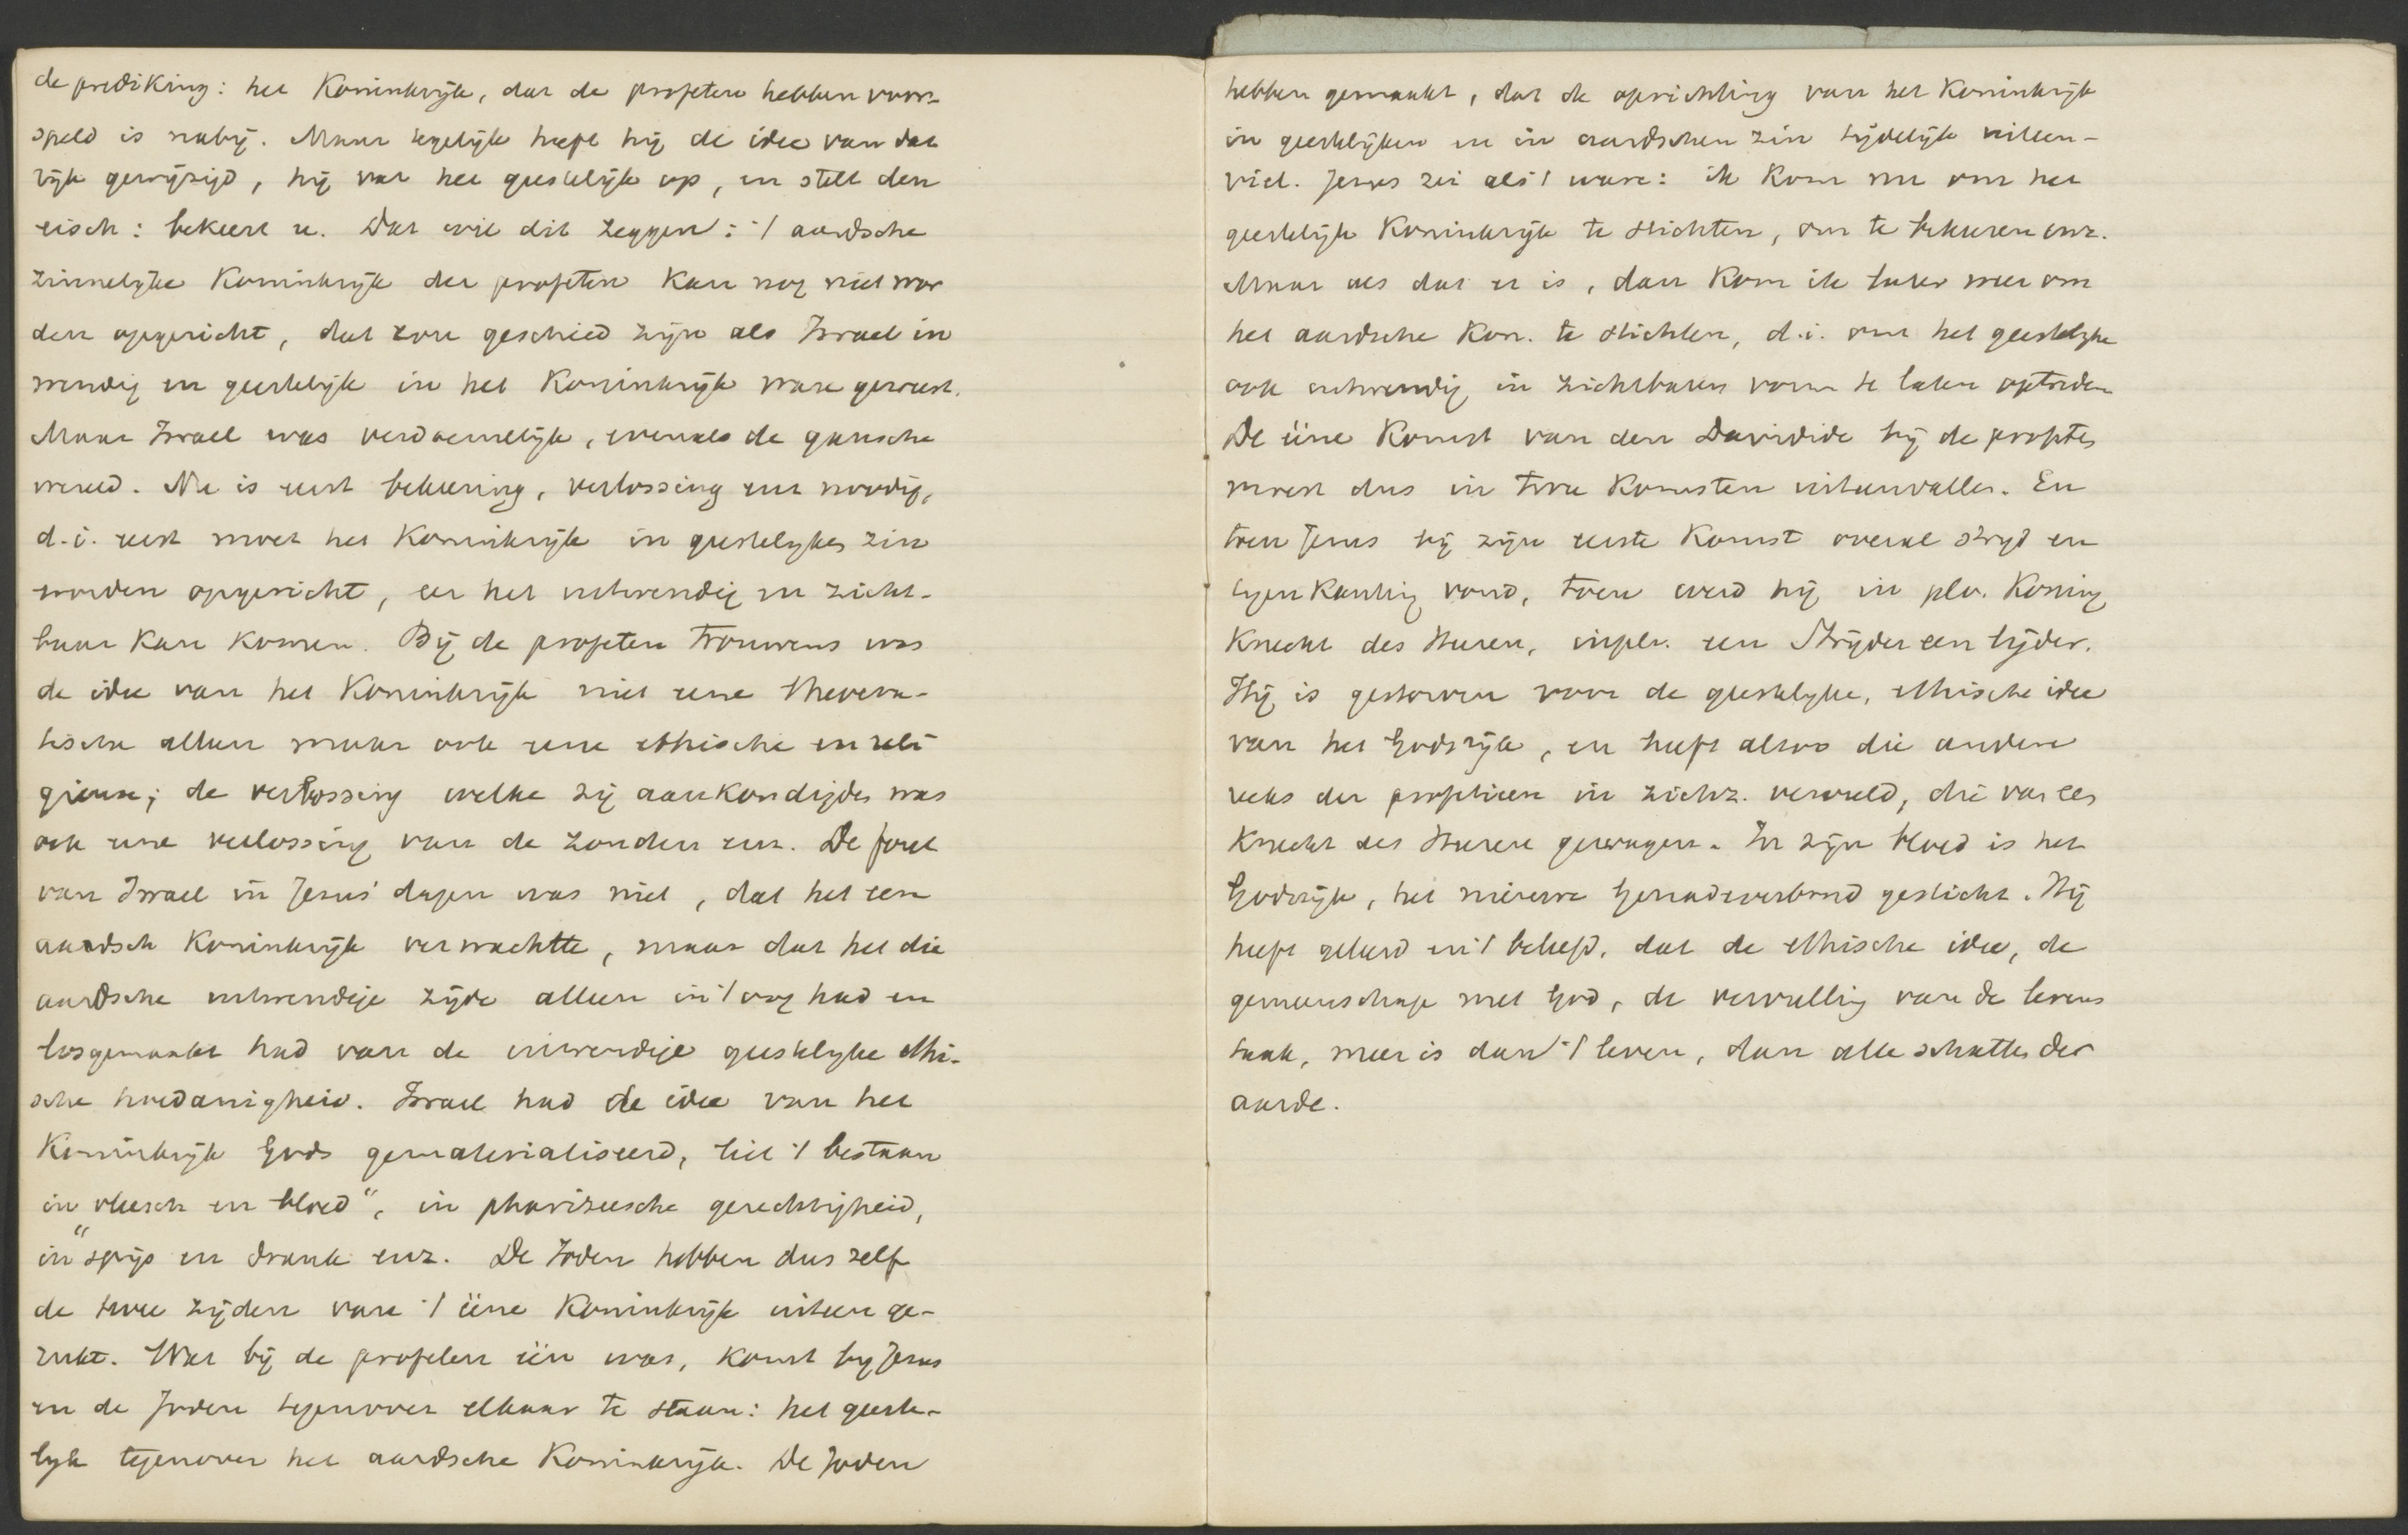 de prediking: het Koninkrijk, dat de profeten hebben voor-
speld is nabij. Maar tegelijk heeft hij de idee van dat
rijk gewijzigd, hij vat het geestelijk op, en stelt den
eisch: bekeert u. Dat wil dit zeggen: 't aardsche
zinnelijke Koninkrijk der profeten kan nog niet wor
den opgericht, dat zou geschied zijn als Israel in
wendig en geestelijk in het Koninkrijk ware geweest.
Maar Israel was verdoemelijk, evenals de gansche
wereld. Nu is eerst bekeering, verlossing enz noodig,
d.i. eerst moet het Koninkrijk in geestelyken zin
worden opgericht, eer het uitwendig en zicht-
baar kan komen. Bij de profeten trouwens was
de idee van het Koninkrijk niet eene theocra-
tische alleen maar ook eene ethische en reli
gieuse; de verlossing welke zij aankondigden was
ook eene verlossing van de zonden enz. De fout
van Israel in Jezus' dagen was niet, dat het een
aardsch Koninkrijk verwachtte, maar dat het die
aardsche uitwendige zijde alleen in 't oog had en
losgemaakt had van de inwendige geestelyke ethi-
sche hoedanigheid. Israel had de idee van het
Koninkrijk Gods gematerialiseerd, liet 't bestaan
in "vleesch en bloed", in pharizeesche gerechtigheid,
in "spijs en drank enz. De Joden hebben dus zelf
de twee zijden van 't ééne Koninkrijk uiteen ge-
rukt. Wat bij de profeten één was, komt by Jezus
en de Joden tegenover elkaar te staan: het geeste-
lyk tegenover het aardsche Koninkrijk. De Joden
hebben gemaakt, dat de oprichting van het Koninkrijk
in geestelijken en in aardschen zin tijdelijk uiteen-
viel. Jezus zei als 't ware: ik kom nu om het
geestelijk Koninkrijk te stichten, om te bekeeren enz.
Maar als dat er is, dan kom ik later weer om
het aardsche Kon. te stichten, d.i. om het geestelyke
ook uitwendig in zichtbaren vorm te laten optreden
De ééne Komst van den Davidide bij de profeten
moest dus in twee Komsten uiteenvallen. En
toen Jezus bij zijn eerste Komst overal stryd en
tegenkanting vond, toen werd hij in pl.v. Koning
Knecht des Heeren, in pl.v. een Strijder een lijder.
Hij is gestorven voor de geestelyke, ethische idee
van het Godsrijk, en heeft alzoo die andere
reeks der profetieen in zichz. vervuld, die van een
Knecht des Heeren gewagen. In zijn bloed is het
Godsrijk, het nieuwe Genadeverbond gesticht. Hij
heeft geleerd en 't beleefd, dat de ethische idee, de
gemeenschap met God, de vervulling van de levens
taak, meer is dan 't leven, dan alle schatten der
aarde.